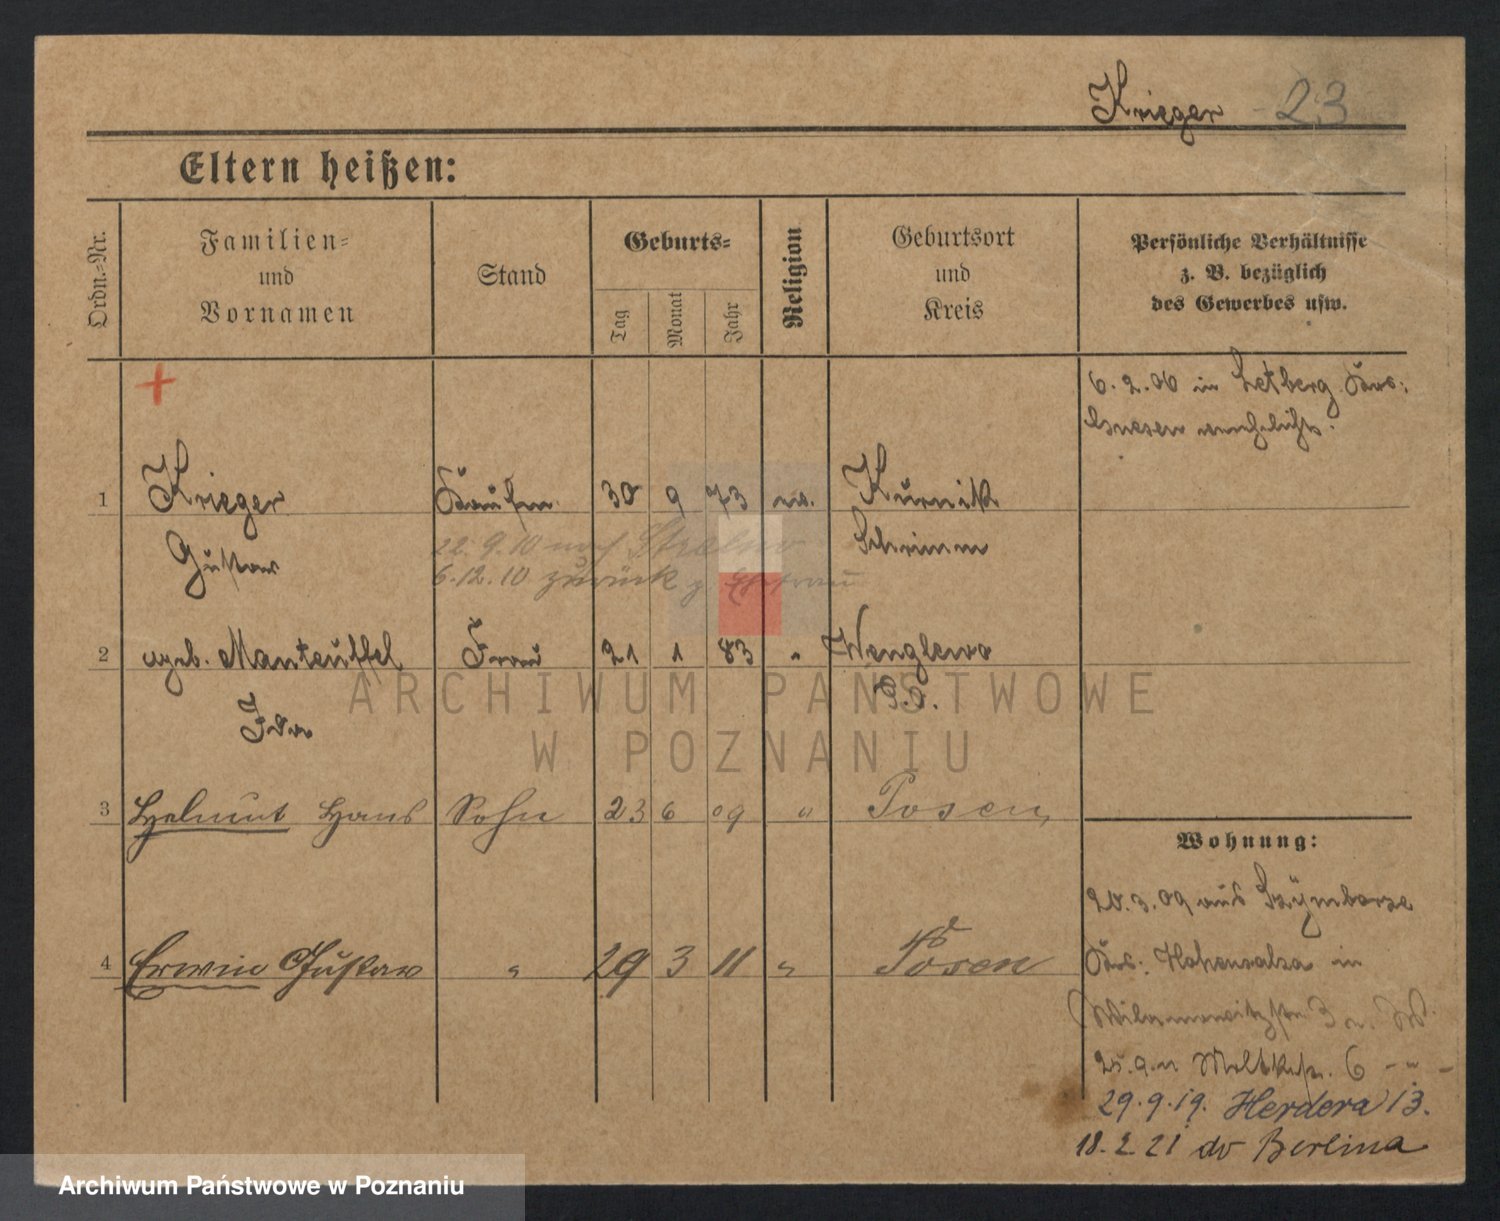 Krieger - 23
Eltern heißen:
Ordn.-Nr.
Familien-
und
Vornamen
Stand
Geburts-
Tag
Monat
Jahr
Religion
Geburtsort
und
Kreis
Persönliche Verhältnisse
z. B. bezüglich
des Gewerbes usw.
+
6. 2. 06 in
Gnesen
1 Krieger Kaufm. 30 9 73 ev. Kurnik
Gustav Schrimm
22. 9. 10 nach Strelno
6. 12. 10 zurück z. Ehefrau
2 geb. Manteuffel Frau 21 1 83 " Wenglewo
Ida
ARCHIWUM PAŃSTWOWE
W POZNANIU
3 Helmut Hans Sohn 23 6 09 " Posen
4 Erwin Gustav " 29 3 11 " Posen
Wohnung:
20. 3. 09 aus Szymborze
Krs. Hohensalza in
3
25. 9. 11 Moltkestr. 6 - " -
29. 9. 19. Herdera 13.
18. 2. 21 do Berlina
Archiwum Państwowe w Poznaniu